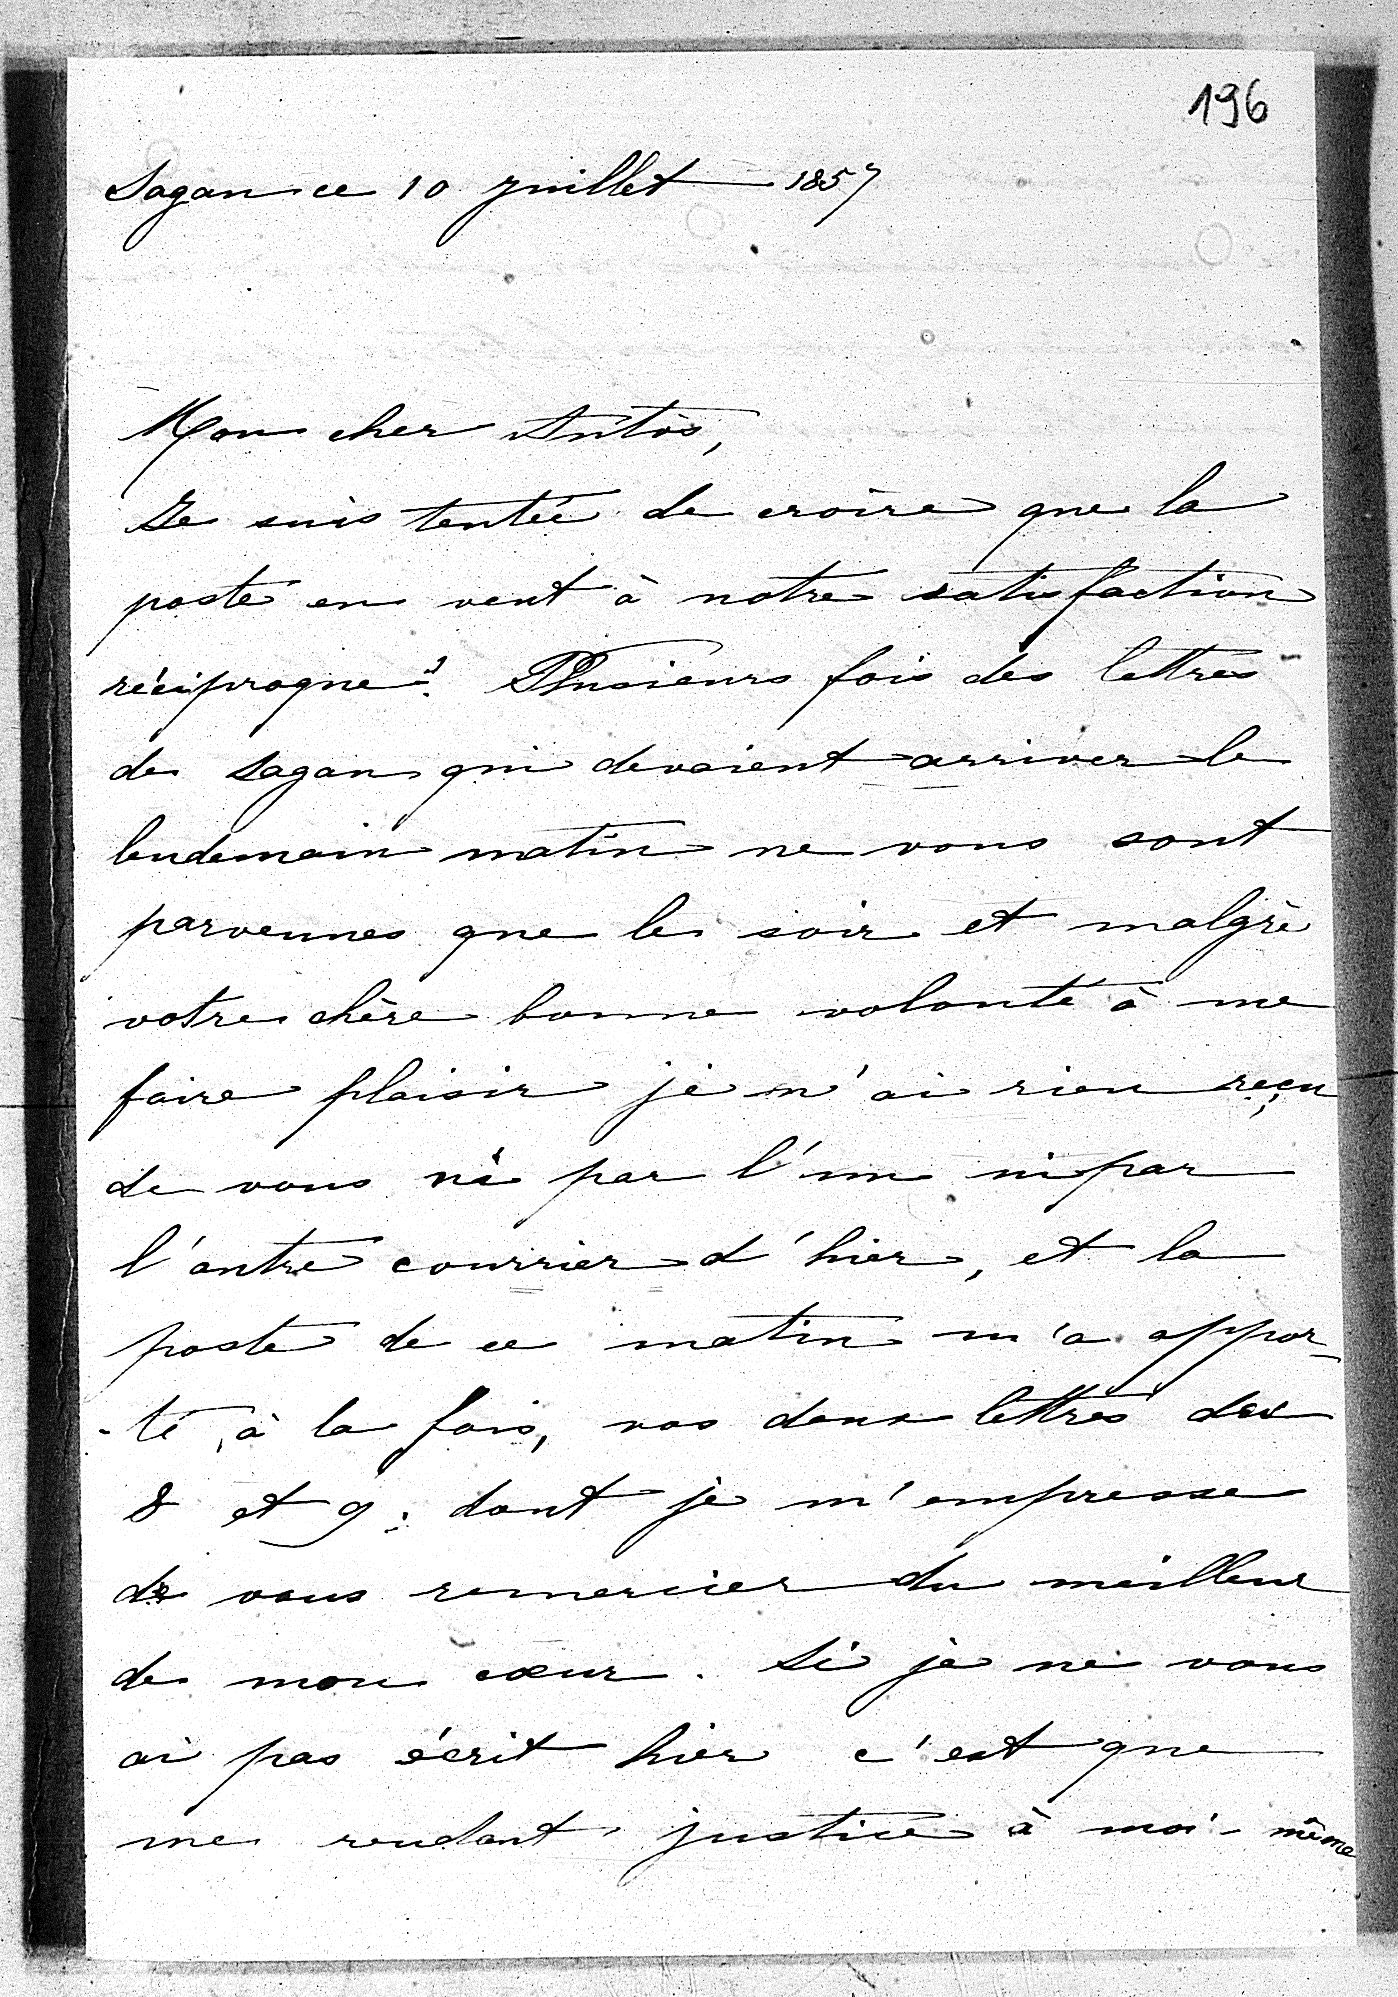 196
Sagan ce 10 Juillet 1857
Mon cher Antòs,
Je suis tentée de croire que la
poste en veut à notre satisfaction
réciproque. Plusieurs fois des lettres
de Sagan qui devaient arriver le
lendemain matin ne vous sont
parvenues que le soir et malgré
votre chère bonne volonté à me
faire plaisir je n'ai rien reçu
de vous ni par l'un ni par
l'autre courrier d'hier, et la
poste de ce matin m'a appor-
-té, à la fois, vos deux lettres des
8 et 9. dont je m'empresse
de vous remercier du meilleur
de mon cœur. Si je ne vous
ai pas écrit hier c'est que
me rendant justice à moi-même